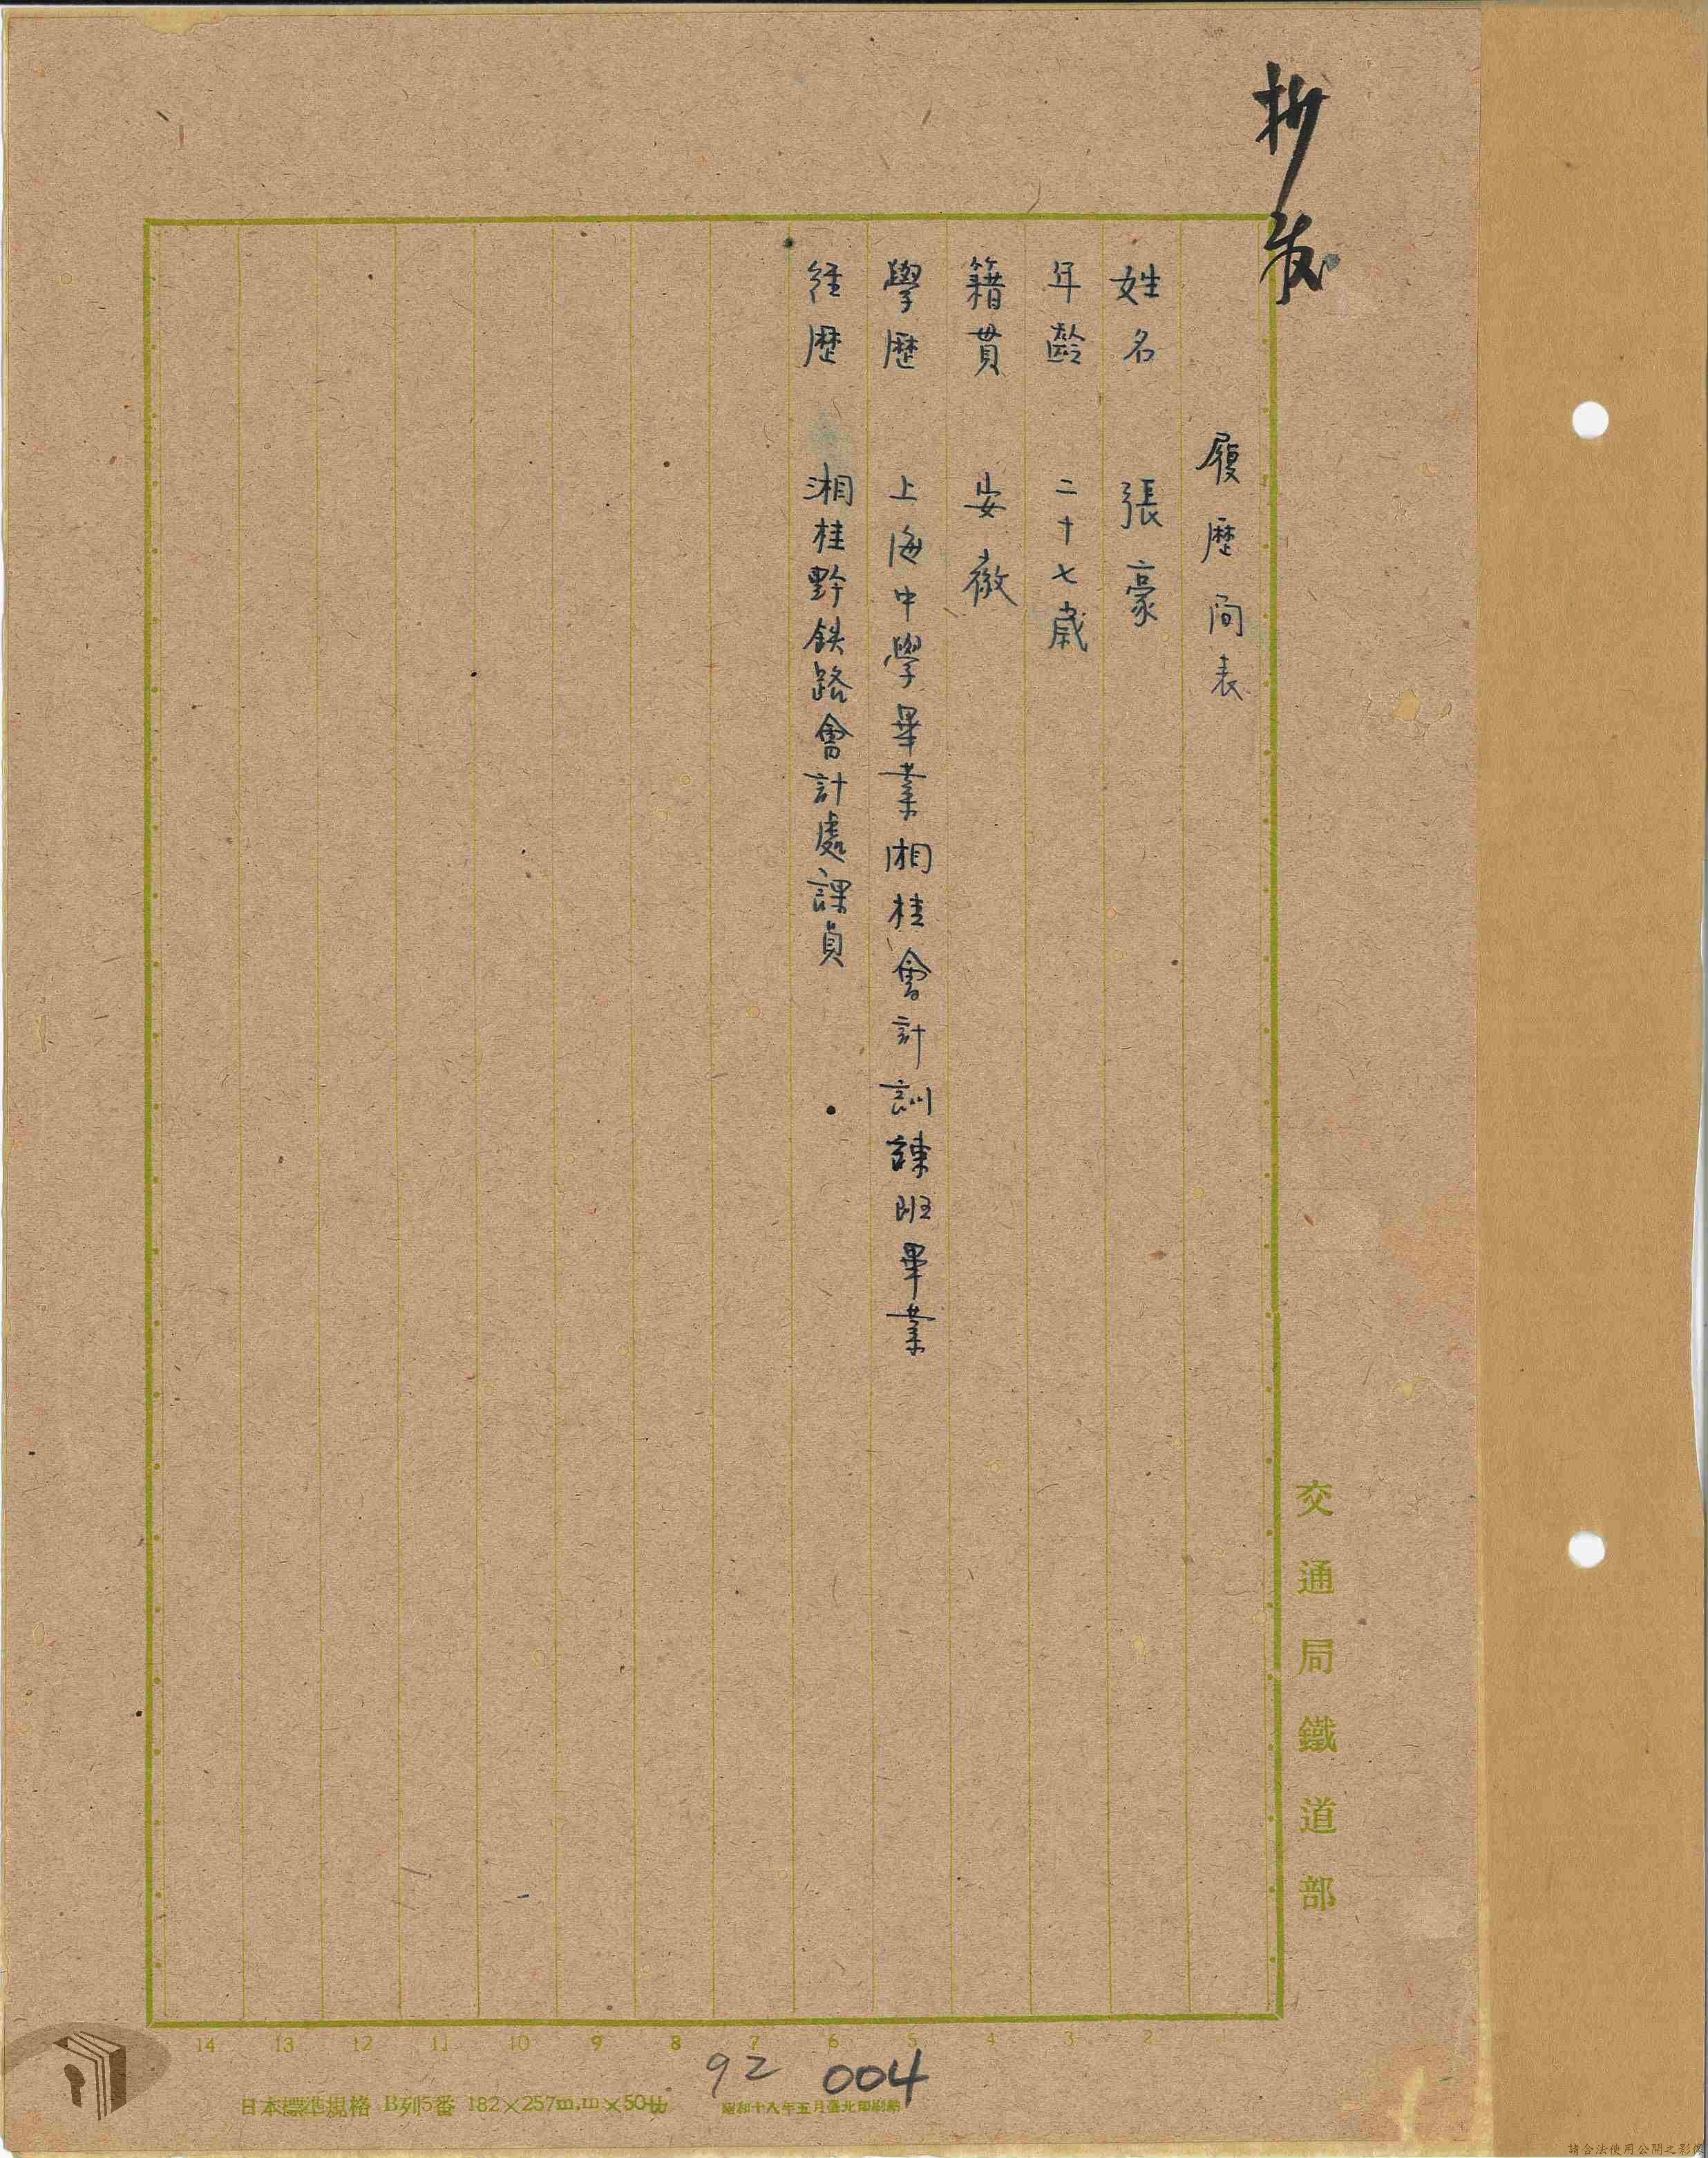 抄發
履歷简表
姓名 張豪
年齡 二十七歲
籍貫 安徽
學歷 上海中學畢業湘桂會計訓練班畢業
經歷 湘桂黔鉄路會計處課員
交通局鐵道部
14 13 12 11 10 9 8 7 6 5 4 3 2 1
92 004
日本標準規格 B列5番 182×257m.m×50
昭和十八年五月臺北印刷納
請合法使用公開之影像